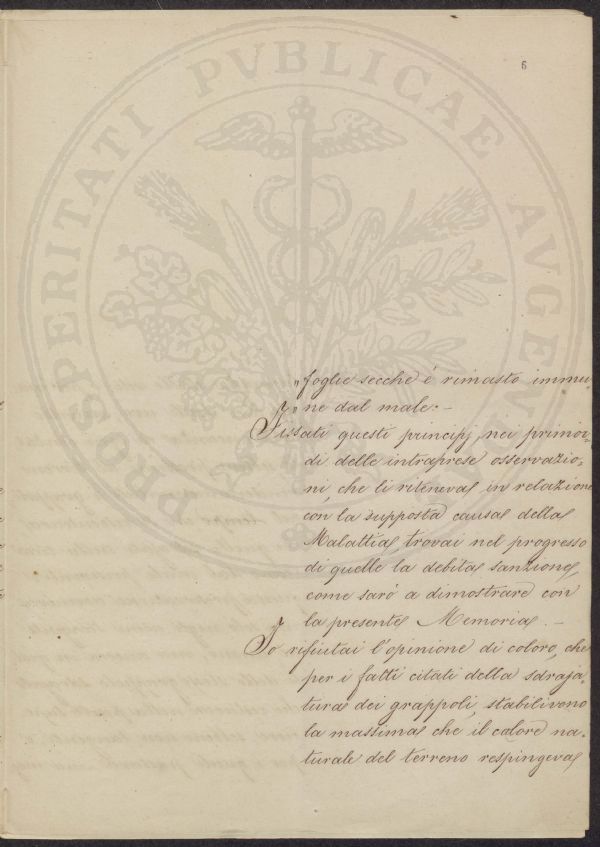 6
PROSPERITATI PVBLICAE AVGENDAE
„foglie secche è rimasto immu-
„ne dal male: –
Fissati questi principj nei primor-
di delle intraprese osservazio-
ni, che li riteneva in relazione
con la supposta causa della
Malattia, trovai nel progresso
di quelle la debita sanzione,
come sarò a dimostrare con
la presente Memoria. –
Io rifiutai l'opinione di coloro, che
per i fatti citati della sdraja-
tura dei grappoli, stabilivono
la massima che il calore na-
turale del terreno respingeva